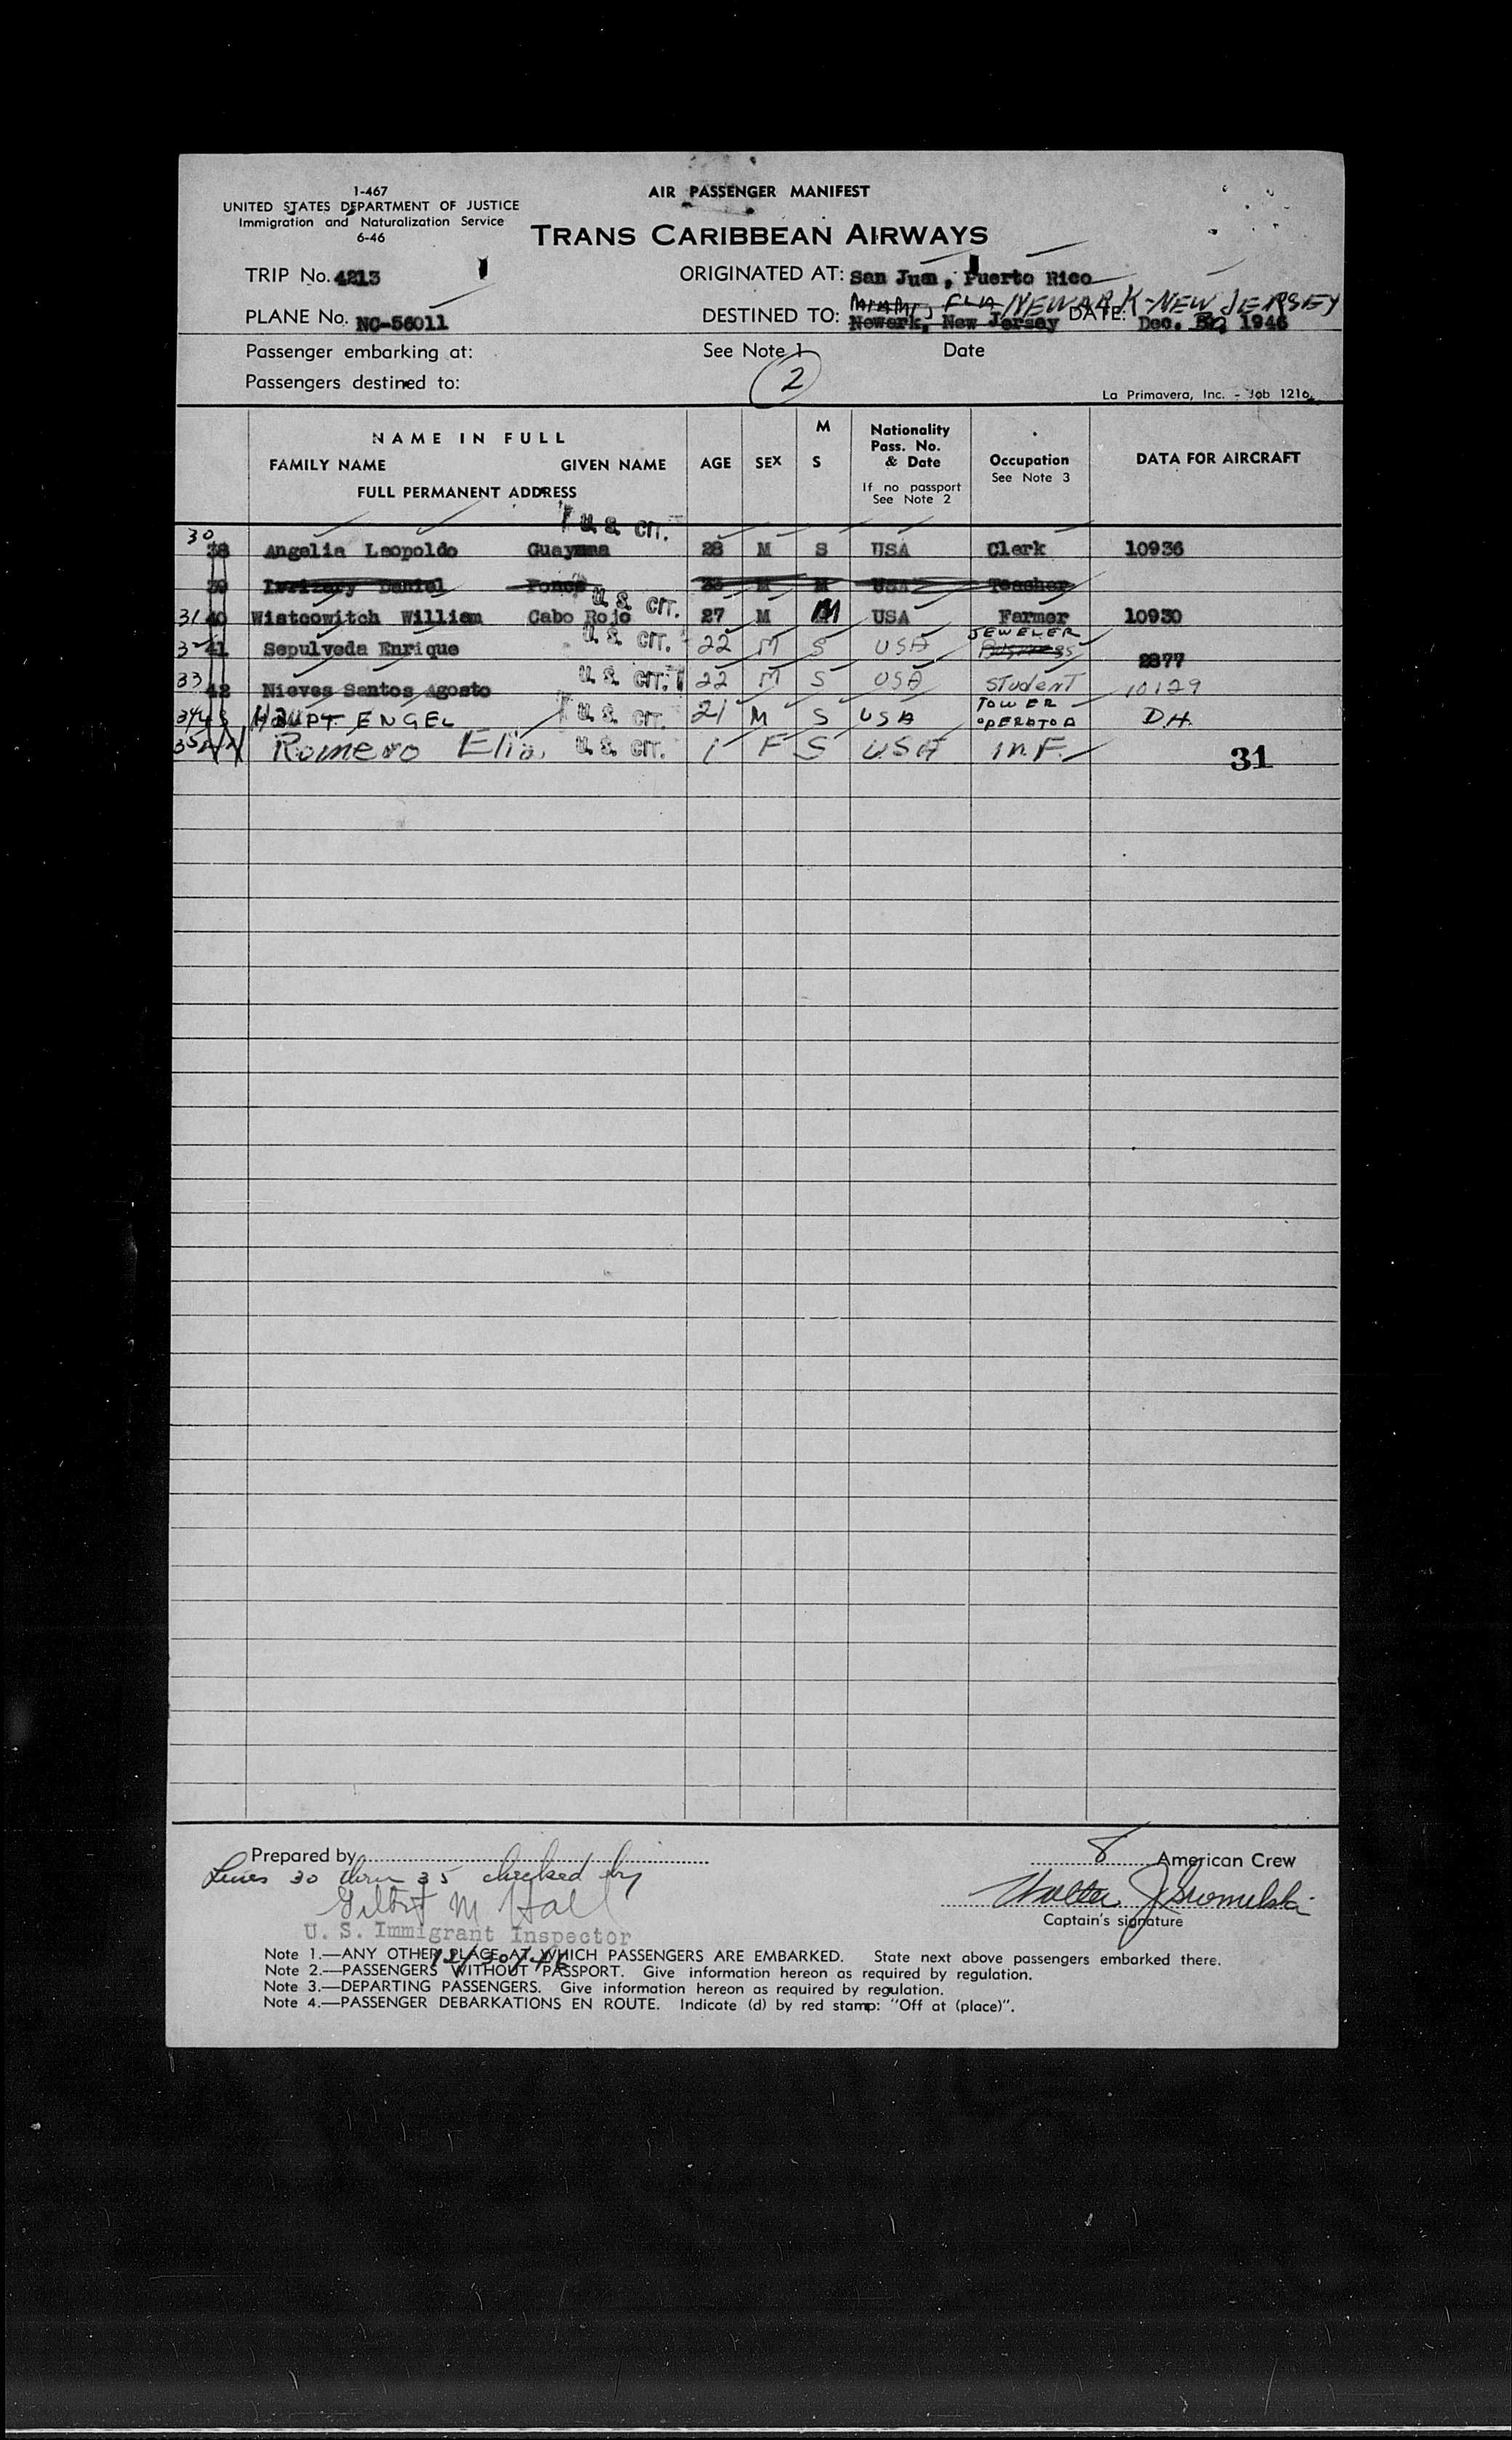 1-467
UNITED STATES DEPARTMENT OF JUSTICE
Immigration and Naturalization Service
6-46
AIR PASSENGER MANIFEST
TRANS CARIBBEAN AIRWAYS
TRIP No. 4213
ORIGINATED AT: San Juan, Puerto Rico
PLANE No. NC-56011
DESTINED TO: MIAMI, FLA NEWARK-NEW JERSEY
Newark, New Jersey DATE: Dec. 30, 1946
Passenger embarking at: See Note 1 Date
Passengers destined to: 2
La Primavera, Inc. - Job 1216
NAME IN FULL
FAMILY NAME GIVEN NAME
FULL PERMANENT ADDRESS
AGE SEX M S
Nationality Pass. No. & Date
If no passport See Note 2
Occupation See Note 3
DATA FOR AIRCRAFT
30 38 Angelia Leopoldo Guayama U. S. CIT. 28 M S USA Clerk 10936
39 Daniel Ponce M M USA Teacher
31 40 Wiscowitch William Cabo Rojo U. S. CIT. 27 M M USA Farmer 10930
32 41 Sepulveda Enrique U. S. CIT. 22 M S USA JEWELER 2877
33 42 Nieves Santos Agosto U. S. CIT. 22 M S USA STUDENT 10129
34 HAUPT ENGEL U. S. CIT. 21 M S USA TOWER OPERATOR DH.
35 Romero Elia. U. S. CIT. 1 F S USA INF.
31
Prepared by
Lines 30 thru 35 checked by
Gilbert M Hall
U. S. Immigrant Inspector
12/30/46
8 American Crew
Captain's signature
Note 1.—ANY OTHER PLACE AT WHICH PASSENGERS ARE EMBARKED. State next above passengers embarked there.
Note 2.—PASSENGERS WITHOUT PASSPORT. Give information hereon as required by regulation.
Note 3.—DEPARTING PASSENGERS. Give information hereon as required by regulation.
Note 4.—PASSENGER DEBARKATIONS EN ROUTE. Indicate (d) by red stamp: "Off at (place)".